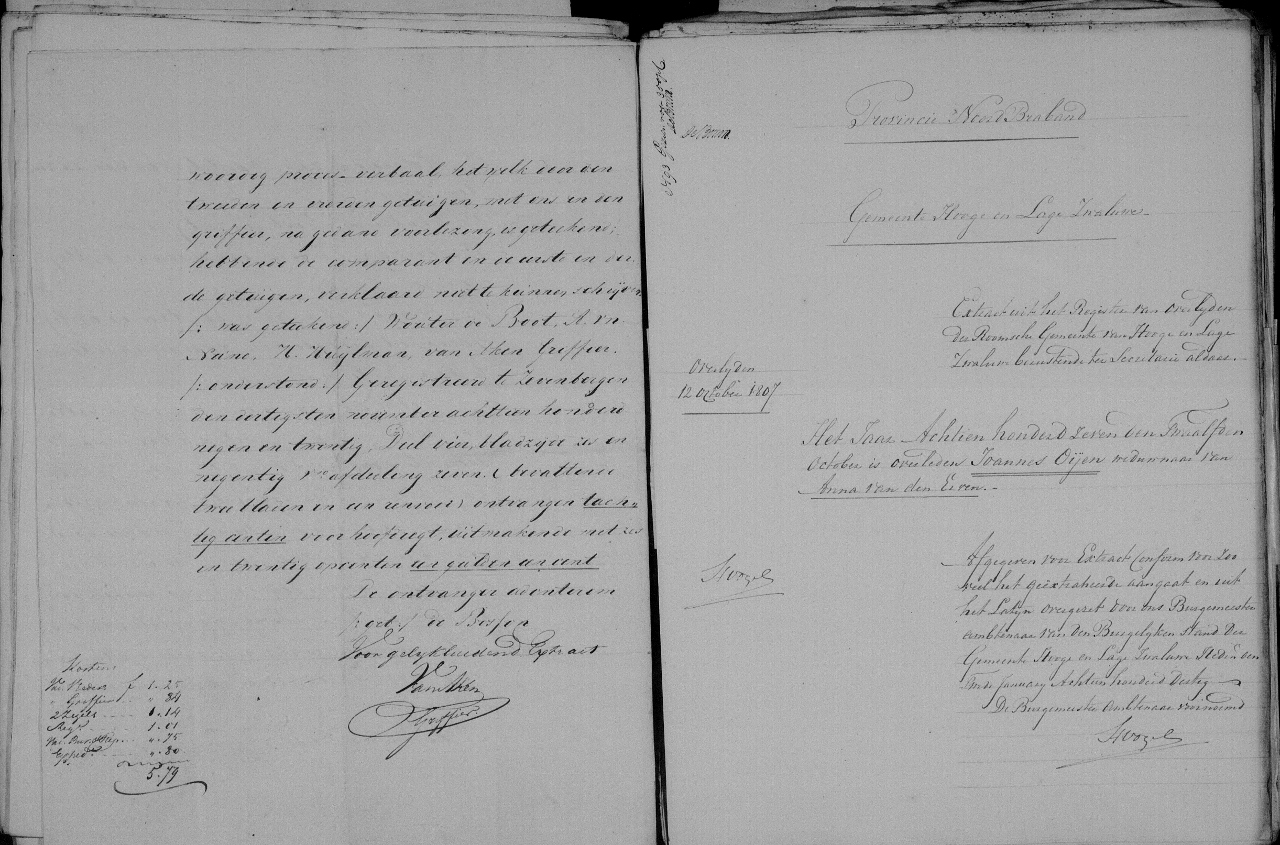 woorig proces-verbaal, het welk door den
tweeden en vierden getuigen, met ons en den
griffier, na gedane voorlezing, is geteekend;
hebbende de comparant en eerste en der-
de getuigen, verklaard niet te kunnen schrijven
/: was geteekend :/ Wouter de Boot, A. van
H. Huijlman, van Aken Griffier.
/: onderstond :/ Geregistreerd te Zevenbergen
den dertigsten november achttien honderd
negen en twintig, Deel vier, bladzijde zes en
negentig vo afdeeling zeven (bevattende
twee bladen en een renvooi) ontvangen tach-
tig centen voor hoofdregt, uitmakende met zes
en twintig opcenten een gulden een cent
De ontvanger ad interim
/: get. :/ de
Voor gelykluidend Extract
Van Aken
Griffier
Kosten
Vac. Vrederr f 1-25
" Griffier " 84
2 Zegels 1.14
Regt 1.01
" 75
Exped. " 80
5.79
de Bruin
Provincie Noord Braband
Gemeente Hooge en Lage Zwaluwe
Extract uit het Register van overlyden
der Roomsche Gemeente van Hooge en Lage
Zwaluwe berustende ter Secretarie aldaar.
Overlyden
12 October 1807
Het Jaar Achtien honderd zeven den Twaalfden
October is overleden Joannes Oijen weduwnaar van
Anna van den Erven.-
HVogel
Afgegeven voor Extract Conform voor zoo
veel het geëxtraheerde aangaat en uit
het Latyn overgezet door ons Burgemeester
Ambtenaar van den Burgelyken stand der
Gemeente Hooge en Lage Zwaluwe Heden den
January Achtien honderd Dertig
De Burgemeester Ambtenaar voornoemd
HVogel